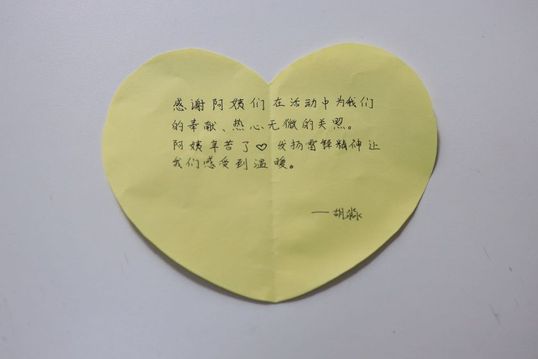 感谢阿姨们在活动中为我们
的奉献、热心无微的关照。
阿姨辛苦了♡发扬雷锋精神让
我们感受到温暖。
——胡淼